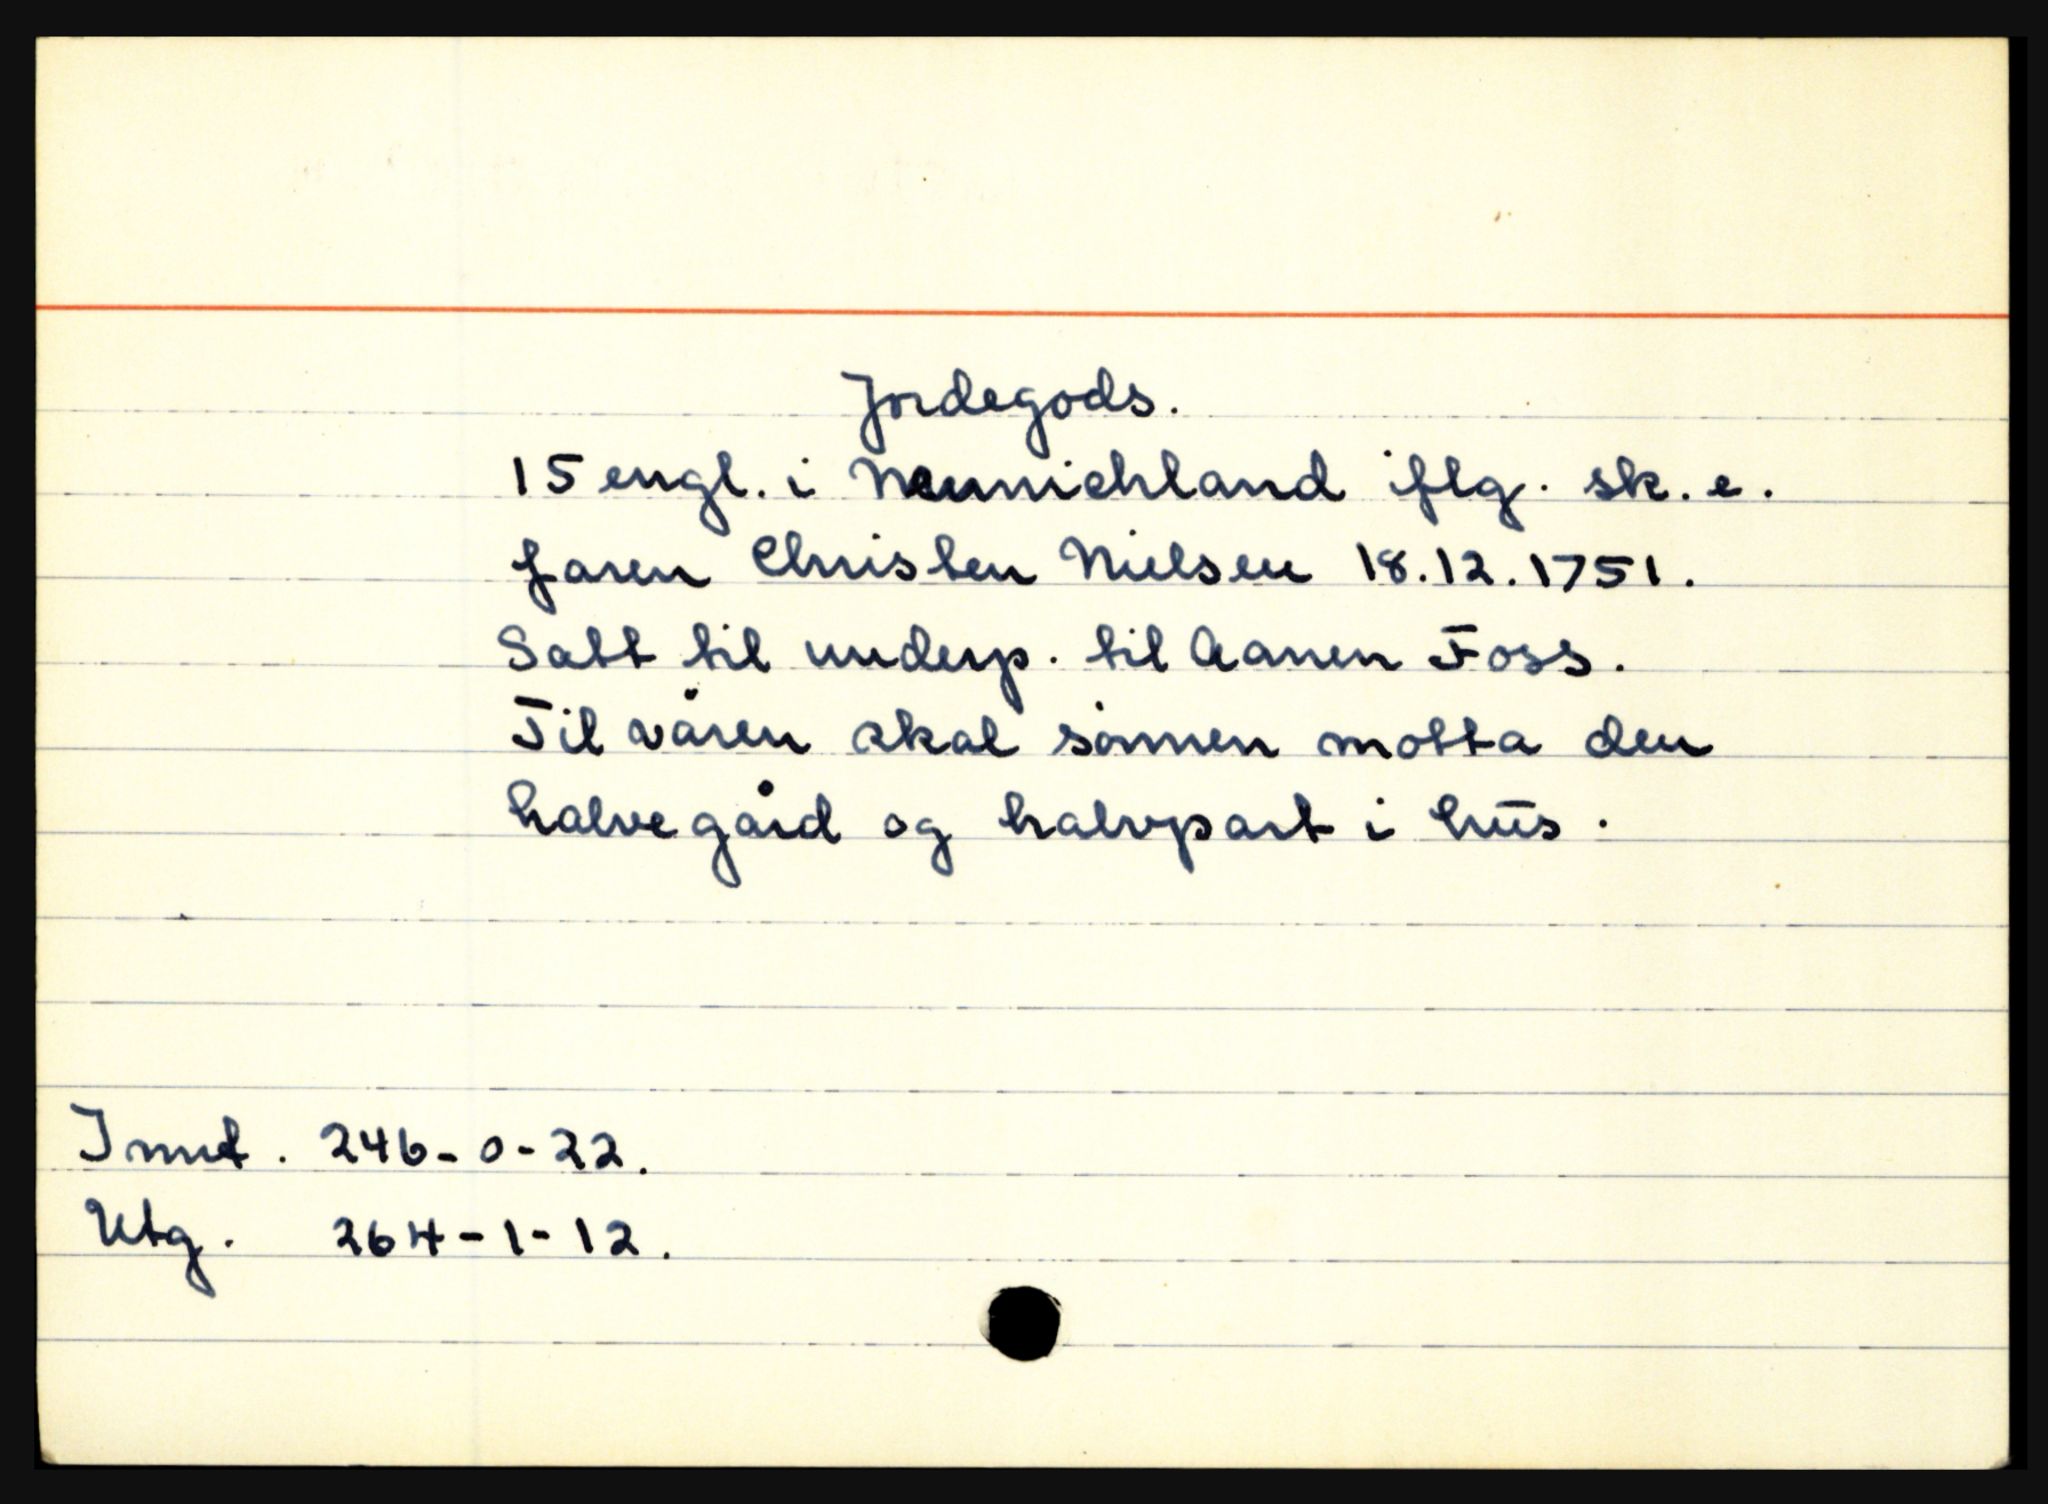 Jordegods.
15 engl. i Mennichland iflg. sk. e.
faren Christen Nielsen 18.12.1751.
Satt til undersp. til Aanen Foss.
Til våren skal sønnen motta den
halve gård og halvpart i hus.
Innt. 246-0-22.
Utg. 264-1-12.